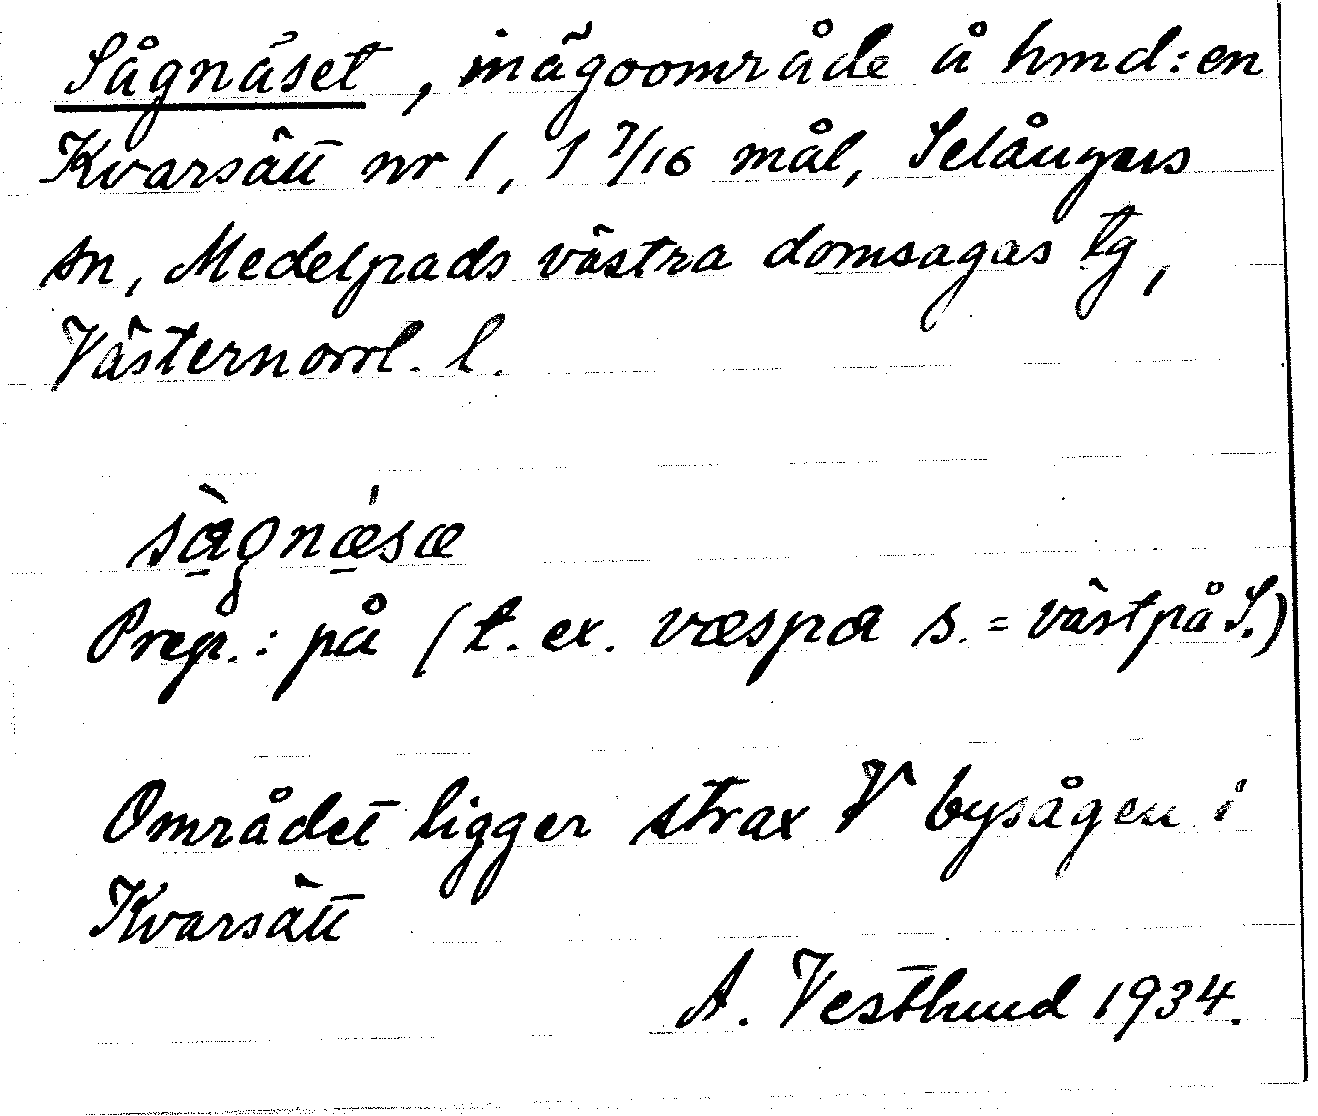 Sågnäset, inägoområde å hmd:en
Kvarsätt nr 1, 1 7/16 mål, Selångers
sn, Medelpads västra domsagas tg,
Västernorrl. l.
sàgnǽsæ
Prep.: på (t. ex. væspa s. = västpå S.)
Området ligger strax V bysågen i
Kvarsätt
A. Vestlund 1934.